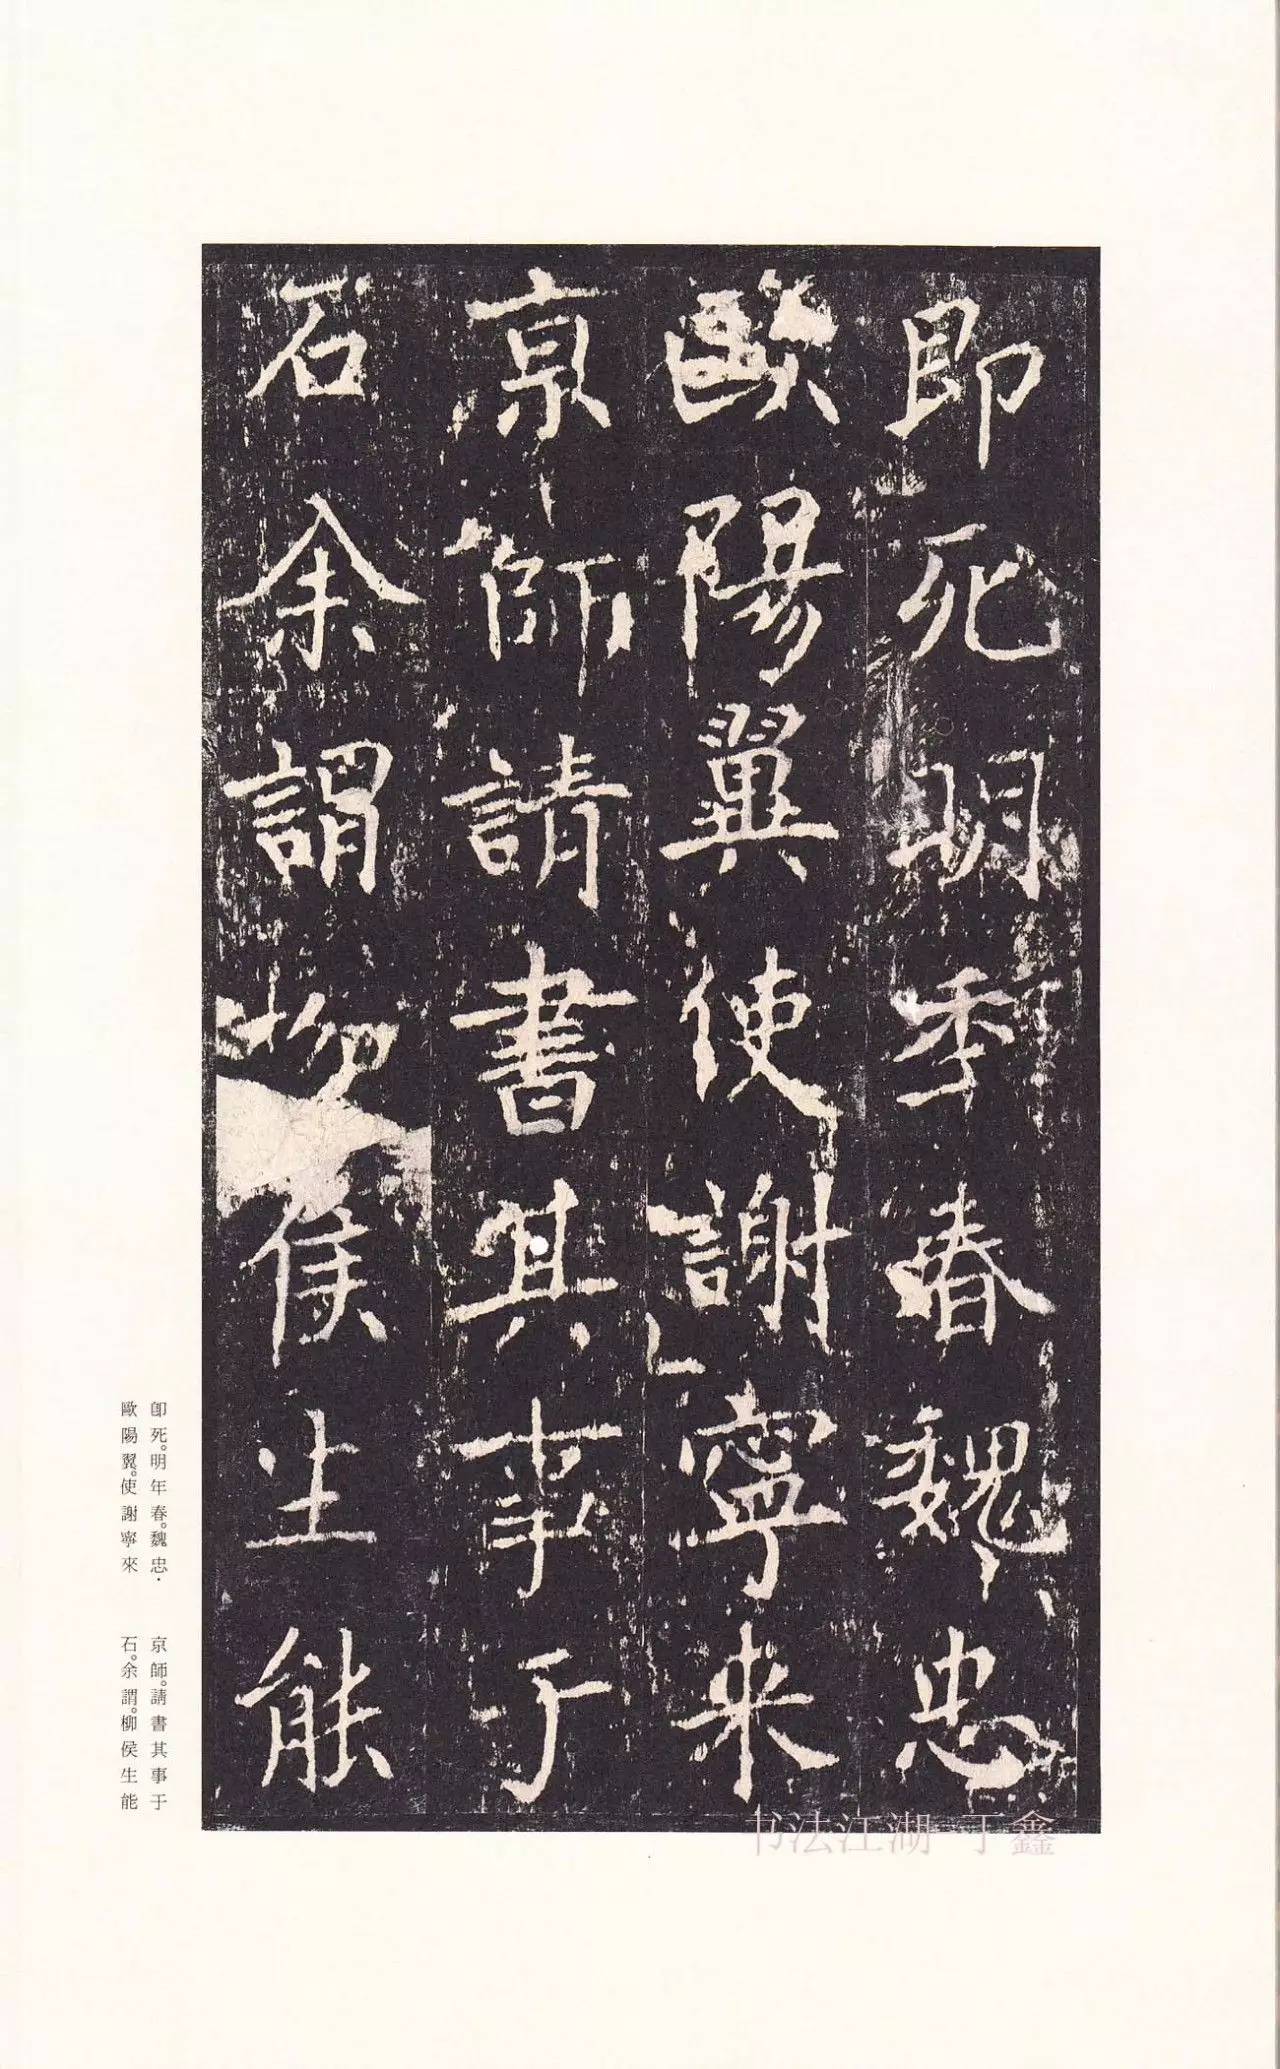 即死明年春魏忠
歐陽翼使謝寧来
京師請書其事于
石余謂柳侯生能
即死。明年春。魏忠·
歐陽翼。使謝寧來
京師。請書其事于
石。余謂。柳侯生能
书法江湖 丁鑫